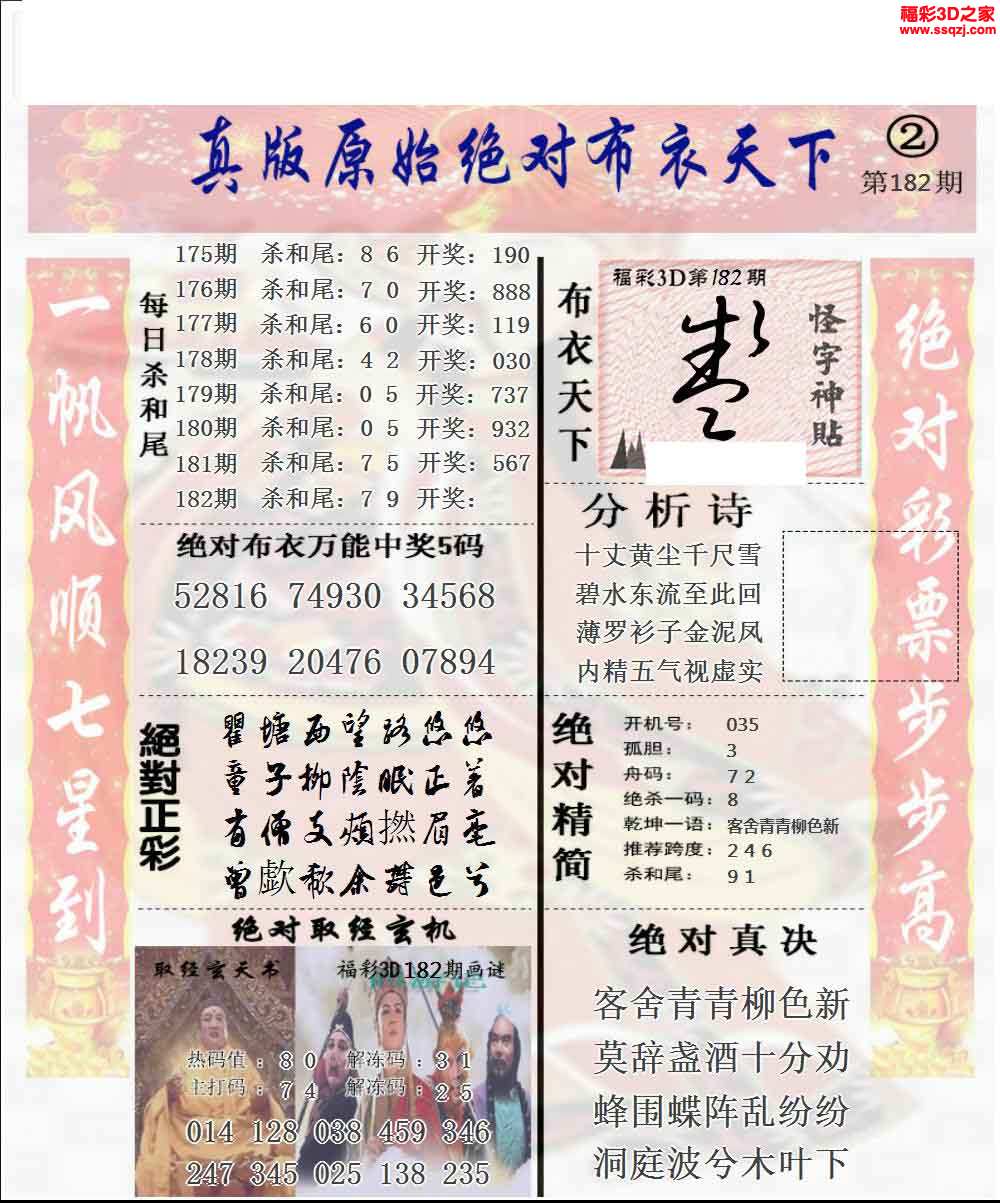 福彩3D之家
www.ssqzj.com
真版原始绝对布衣天下
②
第182期
一帆风顺七星到
每日杀和尾
175期 杀和尾：8 6 开奖：190
176期 杀和尾：7 0 开奖：888
177期 杀和尾：6 0 开奖：119
178期 杀和尾：4 2 开奖：030
179期 杀和尾：0 5 开奖：737
180期 杀和尾：0 5 开奖：932
181期 杀和尾：7 5 开奖：567
182期 杀和尾：7 9 开奖：
绝对布衣万能中奖5码
52816 74930 34568
18239 20476 07894
絕對正彩
瞿塘西望路悠悠
童子柳陰眠正着
有僧支頰撚眉毫
曾歔欷余郁邑兮
绝对取经玄机
取经玄天书
福彩3D182期画谜
热码值：8 0 解冻码：3 1
主打码：7 4 解冻码：2 5
014 128 038 459 346
247 345 025 138 235
布衣天下
福彩3D第182期
怪字神貼
分析诗
十丈黄尘千尺雪
碧水东流至此回
薄罗衫子金泥凤
内精五气视虚实
绝对精简
开机号：035
孤胆：3
舟码：7 2
绝杀一码：8
乾坤一语：客舍青青柳色新
推荐跨度：2 4 6
杀和尾：9 1
绝对真决
客舍青青柳色新
莫辞盏酒十分劝
蜂围蝶阵乱纷纷
洞庭波兮木叶下
绝对彩票步步高